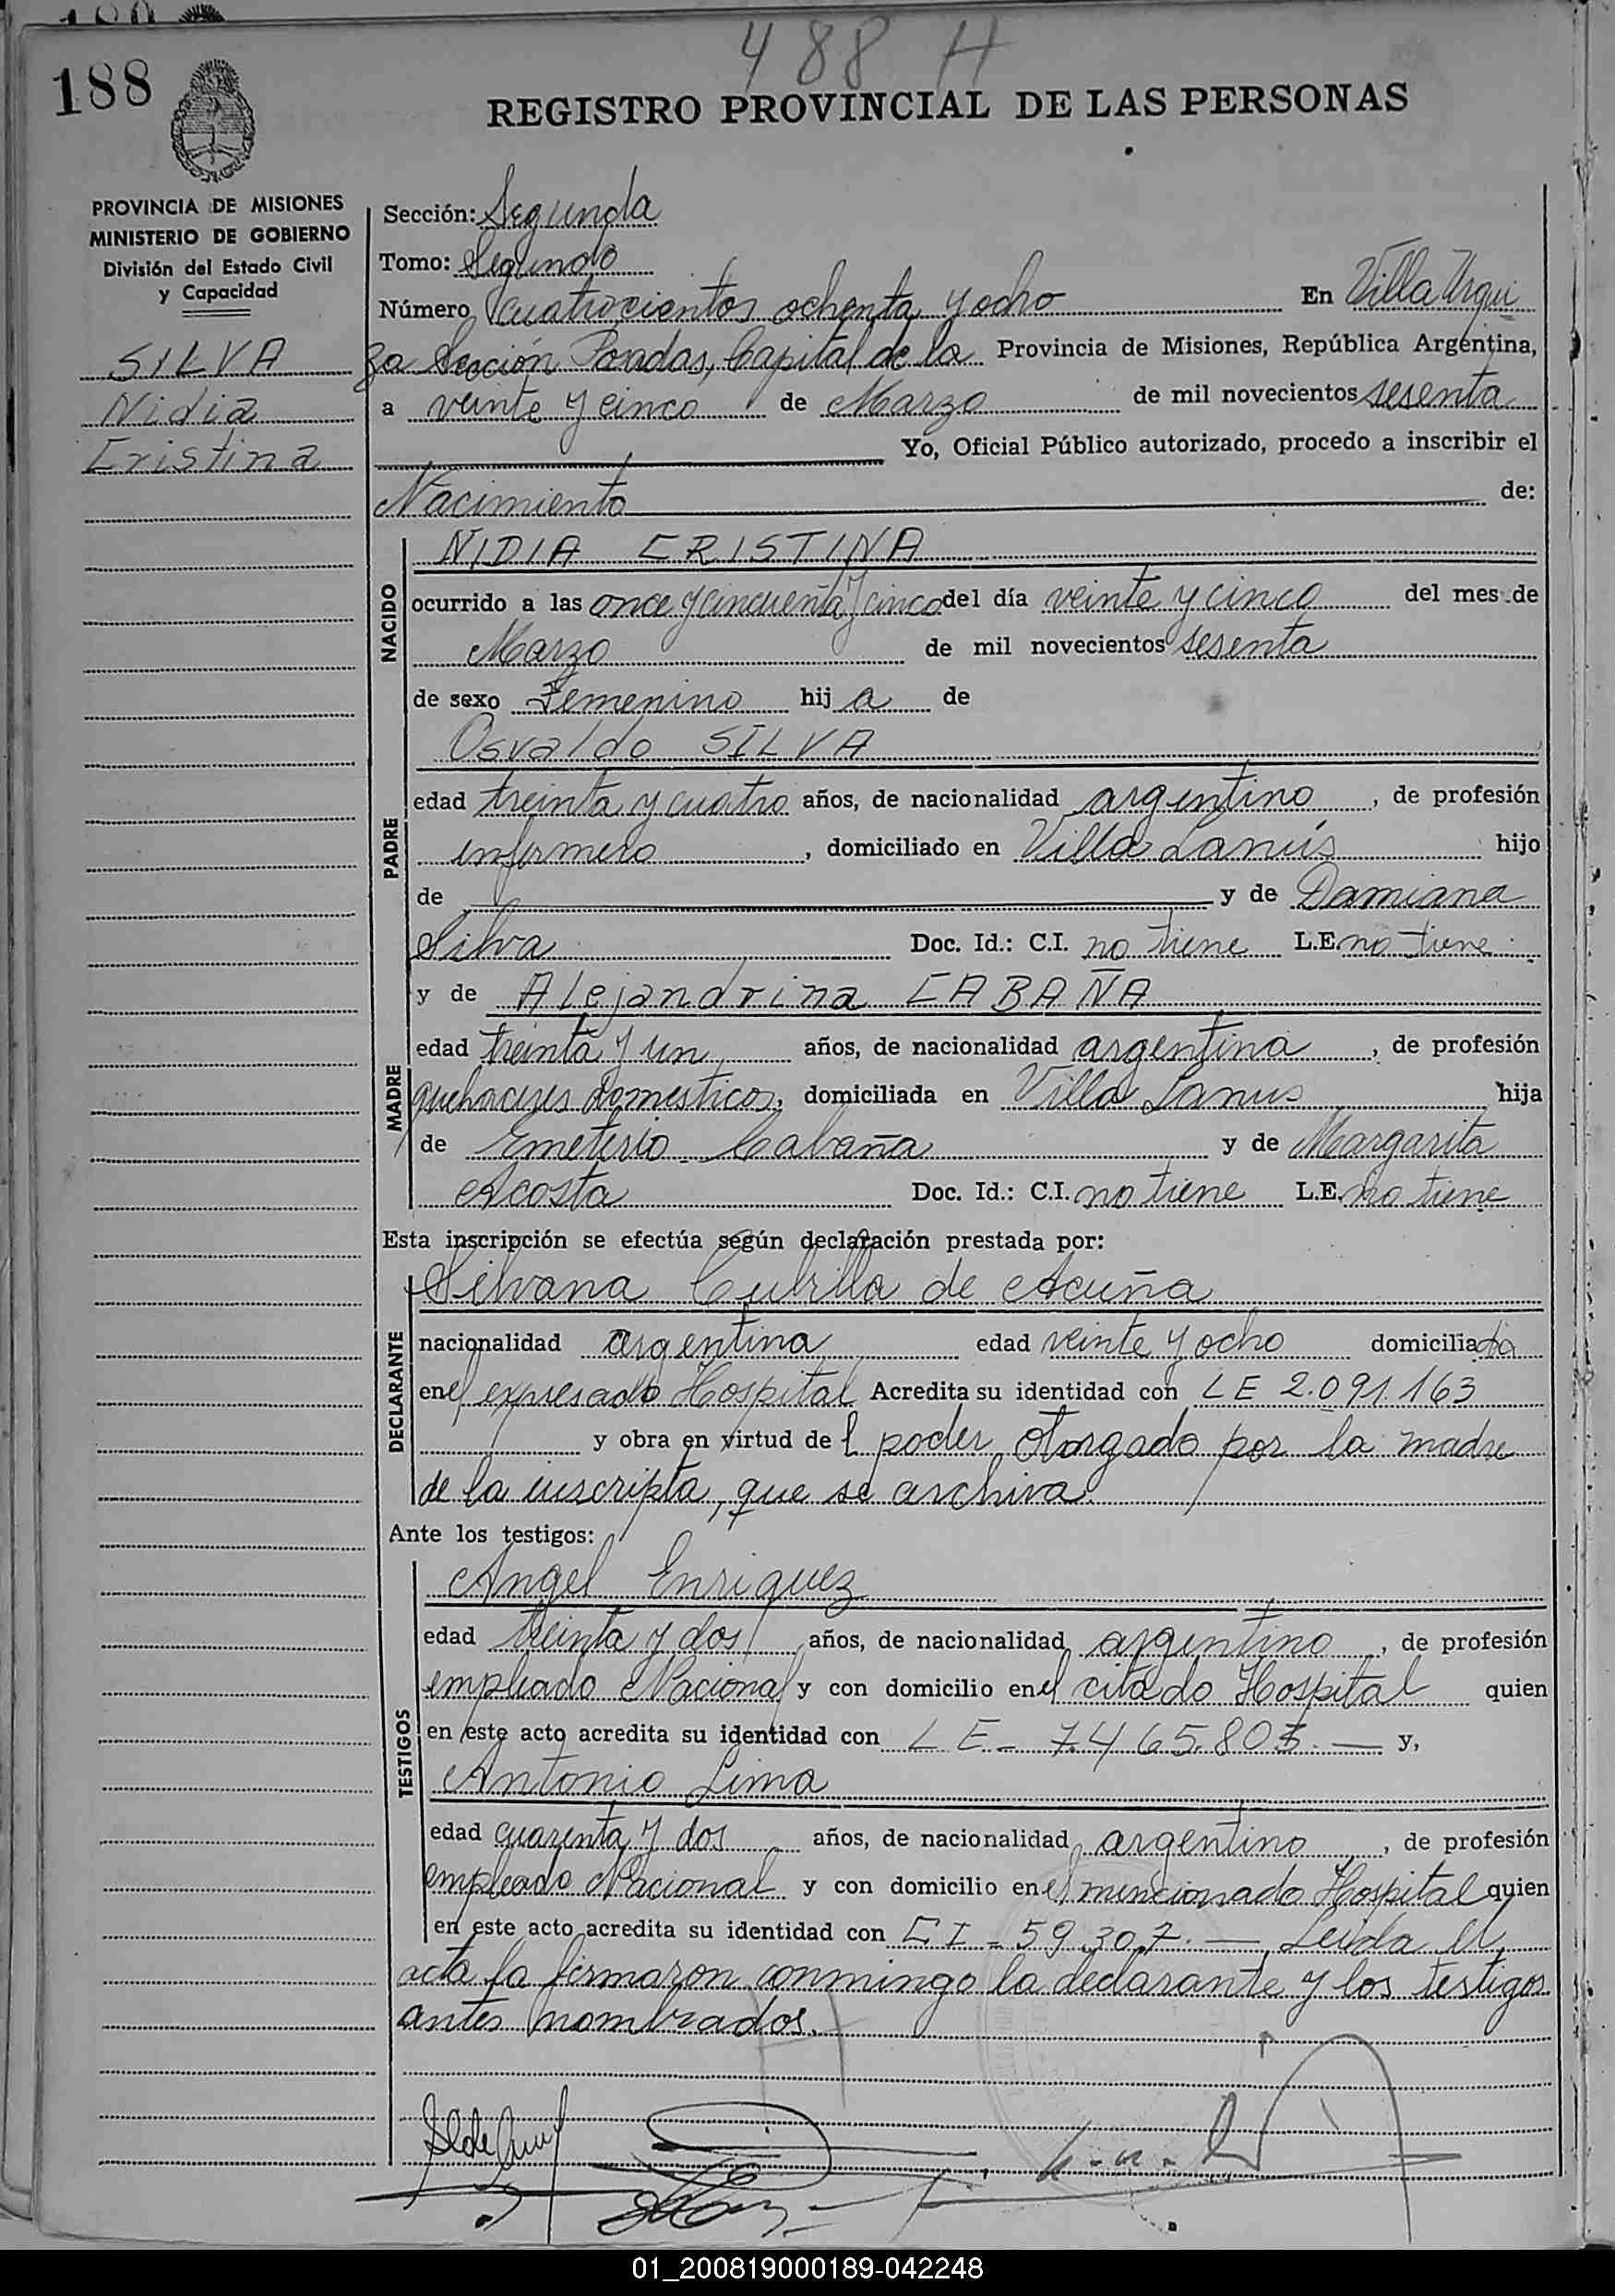 488 H
188
REGISTRO PROVINCIAL DE LAS PERSONAS
PROVINCIA DE MISIONES
MINISTERIO DE GOBIERNO
División del Estado Civil
y Capacidad
SILVA
Nidia
Cristina
Sección: Segunda
Tomo: Segundo
Número Cuatrocientos ochenta y ocho En Villa Urqui
za Sección Posadas, Capital de la Provincia de Misiones, República Argentina,
a veinte y cinco de Marzo de mil novecientos sesenta
Yo, Oficial Público autorizado, procedo a inscribir el
Nacimiento de:
NACIDO
NIDIA CRISTINA
ocurrido a las once y cincuenta y cinco del día veinte y cinco del mes de
Marzo de mil novecientos sesenta
de sexo Femenino hij a de
PADRE
Osvaldo SILVA
edad treinta y cuatro años, de nacionalidad argentino, de profesión
enfermero, domiciliado en Villa Lanús hijo
de y de Damiana
Silva Doc. Id.: C.I. no tiene L.E. no tiene
MADRE
y de Alejandrina CABAÑA
edad treinta y un años, de nacionalidad argentina, de profesión
quehaceres domesticos, domiciliada en Villa Lanus hija
de Emeterio Cabaña y de Margarita
Acosta Doc. Id.: C.I. no tiene L.E. no tiene
Esta inscripción se efectúa según declaración prestada por:
DECLARANTE
Silvana Cubilla de Acuña
nacionalidad argentina edad veinte y ocho domiciliada
en el expresado Hospital Acredita su identidad con LE 2.091.163
y obra en virtud de l poder otorgado por la madre
de la inscripta, que se archiva.
Ante los testigos:
TESTIGOS
Angel Enriquez
edad treinta y dos años, de nacionalidad argentino, de profesión
empleado Nacional y con domicilio en el citado Hospital quien
en este acto acredita su identidad con LE - 7.465.803. — y,
Antonio Lima
edad cuarenta y dos años, de nacionalidad argentino, de profesión
empleado Nacional y con domicilio en el mencionado Hospital quien
en este acto acredita su identidad con CI - 59.307. — Leida el
acta la firmaron conmingo la declarante y los testigos
antes nombrados.
01_200819000189-042248